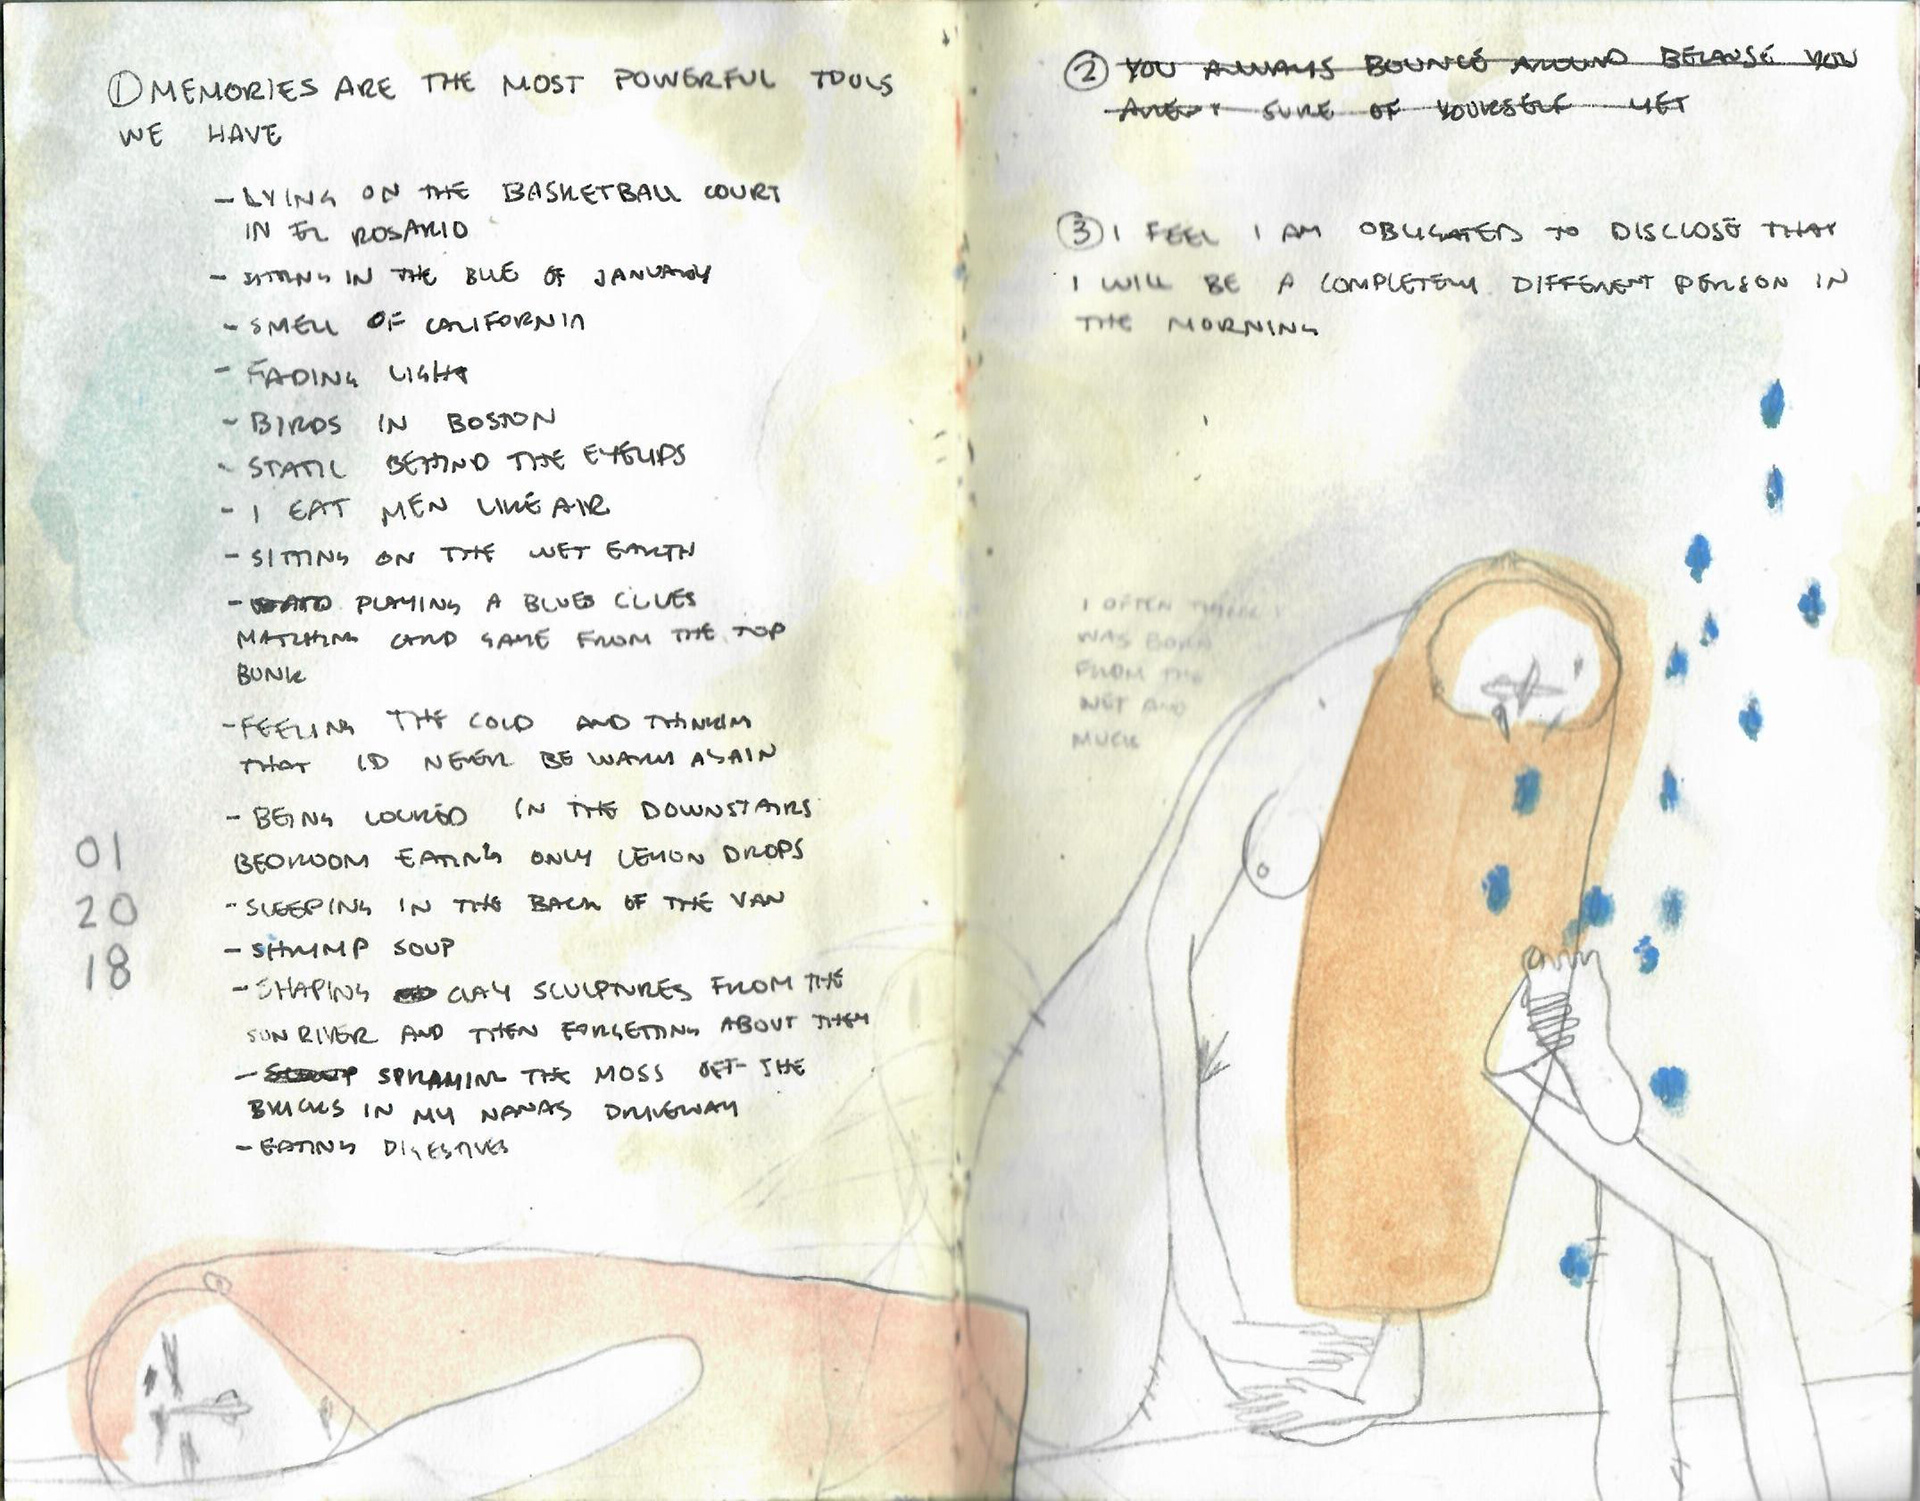 ① MEMORIES ARE THE MOST POWERFUL TOOLS
WE HAVE
- LYING ON THE BASKETBALL COURT
IN EL ROSARIO
- SITTING IN THE BLUE OF JANUARY
- SMELL OF CALIFORNIA
- FADING LIGHT
- BIRDS IN BOSTON
- STATIC BEHIND THE EYELIDS
- I EAT MEN LIKE AIR
- SITTING ON THE WET EARTH
- PLAYING A BLUES CLUES
MATCHING CARD GAME FROM THE TOP
BUNK
- FEELING THE COLD AND THINKIN
THAT ID NEVER BE WARM AGAIN
- BEING LOCKED IN THE DOWNSTAIRS
BEDROOM EATING ONLY LEMON DROPS
- SLEEPING IN THE BACK OF THE VAN
- SHRIMP SOUP
- SHAPING CLAY SCULPTURES FROM THE
SUN RIVER AND THEN FORGETTING ABOUT THEM
- SPRAYING THE MOSS OFF THE
BRICKS IN MY NANAS DRIVEWAY
- EATING DIGESTIVES
01
20
18
② YOU ALWAYS BOUNCE AROUND BECAUSE YOU
AREN'T SURE OF YOURSELF YET
③ I FEEL I AM OBLIGATED TO DISCLOSE THAT
I WILL BE A COMPLETELY DIFFERENT PERSON IN
THE MORNING
I OFTEN THINK I
WAS BORN
FROM THE
WET AND
MUCK